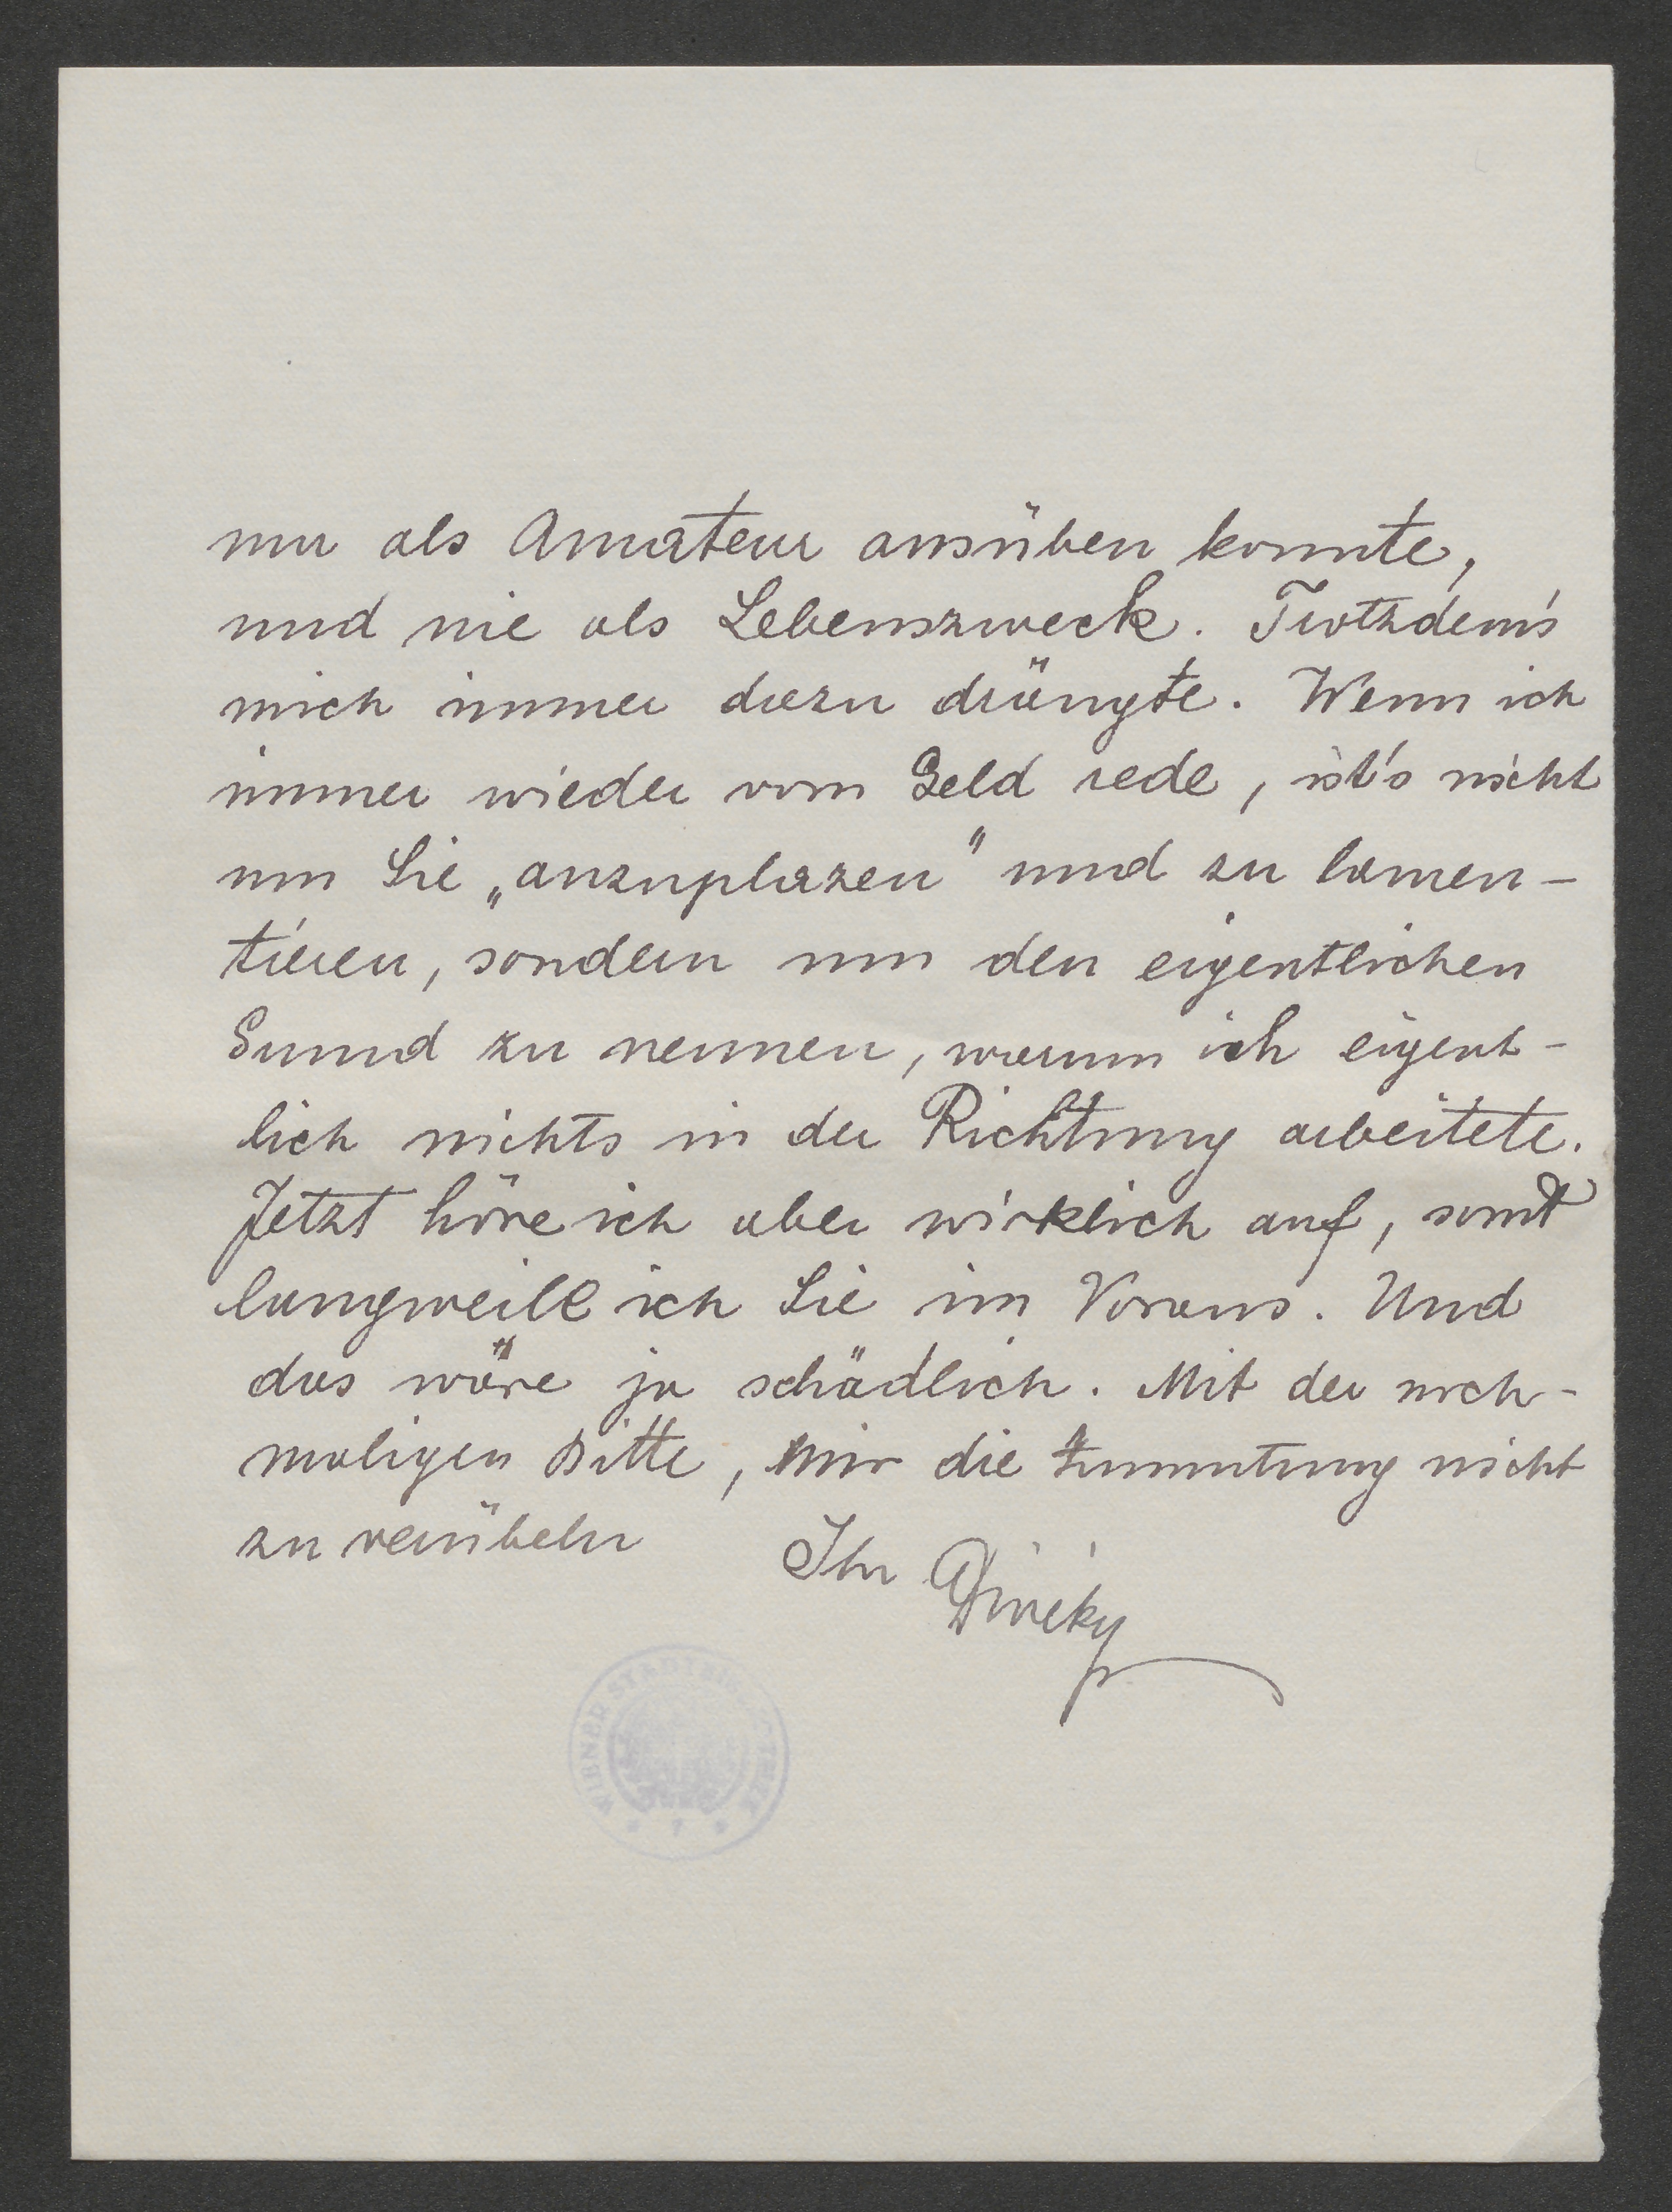 nur als Amateur ausüben konnte,
und nie als Lebenszweck. Trotzdem's
mich immer dazu drängte. Wenn ich
immer wieder vom Geld rede, ist's nicht
um Sie „anzuplazen" und zu lamen-
tieren, sondern um den eigentlichen
Grund zu nennen, warum ich eigent-
lich nichts in der Richtung arbeitete.
Jetzt höre ich aber wirklich auf, sonst
langweile ich Sie im Voraus. Und
das wäre ja schädlich. Mit der noch-
maligen Bitte, mir die Zumutung nicht
zu verübeln Ihr
WIENER STADTBIBLIOTHEK